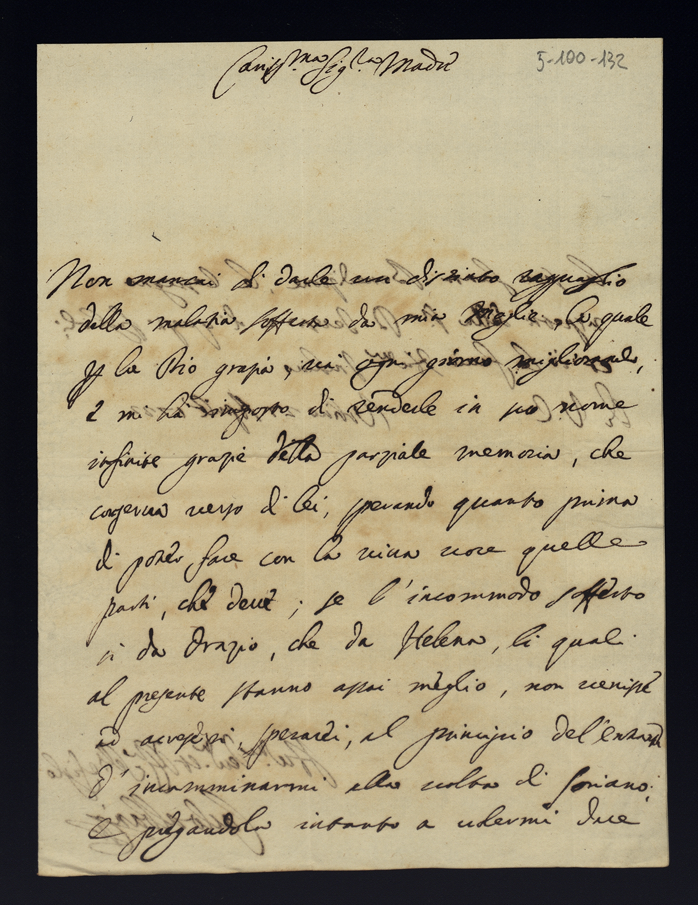 Cariss.ma Sig.ra Madre
5-100-132
Non mancai di darle un distinto raguaglio
della malatia sofferta da mia Moglie, la quale
p la Dio grazia, và ogni giorno migliorando,
e mi hà imposto di renderle in suo nome
infinite grazie della parziale memoria, che
conserva verso di lei, sperando quanto prima
di poter fare con la viva voce quelle
parti, che deve; se l'incommodo sofferto
sì da Orazio, che da Helena, li quali
al presente stanno assai meglio, non venisse
ad accrescersi, sperarei, al principio del'entrante
d'incamminarmi alla volta di Soriano;
e pregandola intanto a volermi dare